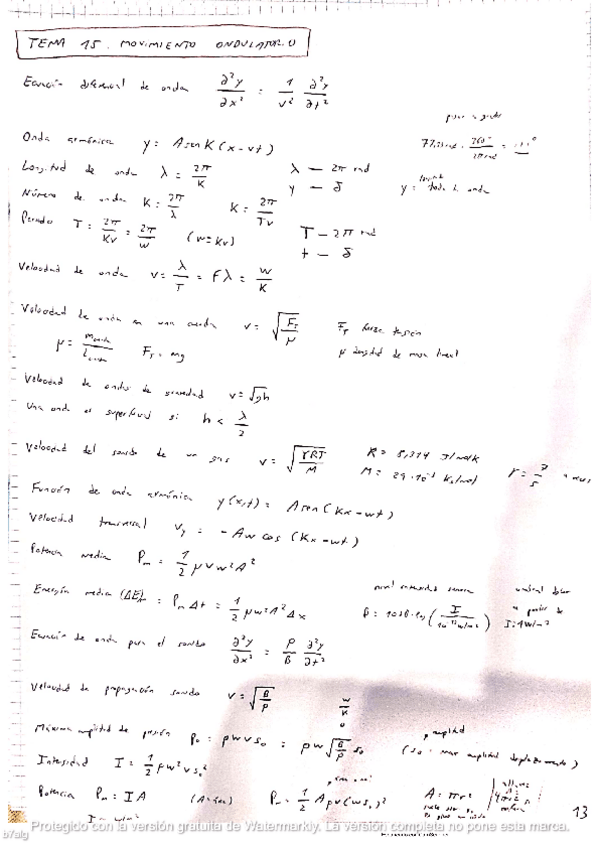 TEMA 15. MOVIMIENTO ONDULATORIO
Ecuación diferencial de onda ∂²y/∂x² = 1/v² ∂²y/∂t²
pasar a grados
Onda armónica y = A sen K (x - vt)
Longitud de onda λ = 2π/K λ — 2π rad
y — δ y = toda la onda
Número de onda K = 2π/λ K = 2π/Tv
Periodo T = 2π/Kv = 2π/w (w = Kv) T — 2π rad
t — δ
Velocidad de onda v = λ/T = Fλ = w/K
Velocidad de onda en una cuerda v = √(F_T/μ) F_T fuerza tensión
μ = m cuerda/L cuerda F_T = mg μ densidad de masa lineal
Velocidad de ondas de gravedad v = √gh
Una onda es superficial si h < λ/2
Velocidad del sonido de un gas v = √(γRT/M) R = 8,314 J/molK
M = 29·10⁻³ Kg/mol γ = 7/5
Función de onda armónica y(x,t) = A sen (Kx - wt)
Velocidad transversal v_y = - Aw cos (Kx - wt)
Potencia media P_m = 1/2 μvw²A²
Energía media (ΔE)_m = P_m Δt = 1/2 μw²A²Δx
nivel intensidad sonora umbral dolor
β = 10dB·lg (I/10⁻¹²w/m²) a partir de
I = 1W/m²
Ecuación de onda para el sonido ∂²y/∂x² = ρ/B ∂²y/∂t²
Velocidad de propagación sonido v = √(B/ρ) w/K
Máxima amplitud de presión p₀ = ρwvs₀ = ρw√(B/ρ) s₀ (s₀ = max amplitud desplazamiento)
amplitud
Intensidad I = 1/2 ρw²vs₀²
Potencia P_m = IA (A = área) P_m = 1/2 Aρv(ws₀)² A = πr² 4πr²
13
Protegido con la versión gratuita de Watermarkly. La versión completa no pone esta marca.
b7alg